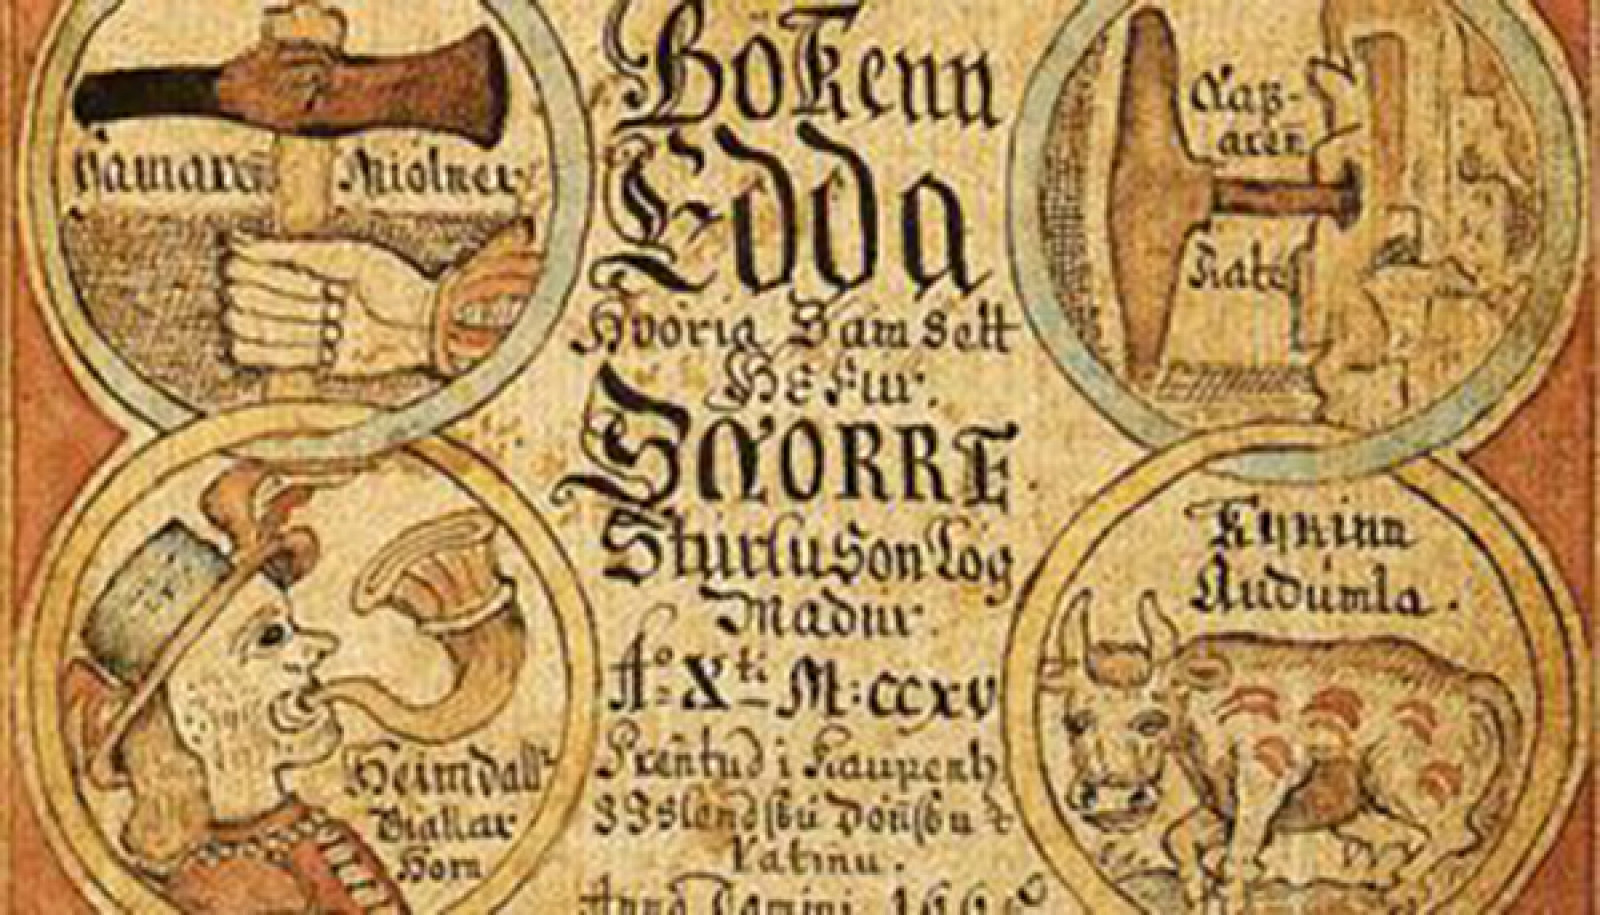 Bökenn
Edda
Hvoria Samsett
Hefur.
SNORRE
Sturluson Log
Madur.
A° Xti M:ccxv
Prentud i Kaupenh
Islendsku Dönsku &
Latinu.
Anno Domini 166
Hamaren Miolner
Nagl-
aren
Heimdall
Giallar
Horn
Kyrinn
Audumla.